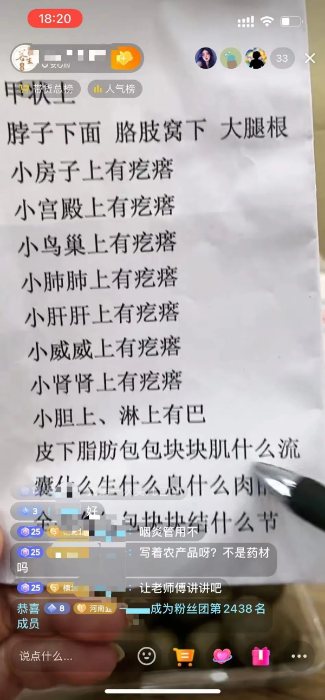 18:20
33
带货总榜 人气榜
甲状上
脖子下面 胳肢窝下 大腿根
小房子上有疙瘩
小宫殿上有疙瘩
小鸟巢上有疙瘩
小肺肺上有疙瘩
小肝肝上有疙瘩
小威威上有疙瘩
小肾肾上有疙瘩
小胆上、淋上有巴
皮下脂肪包包块块肌什么流
囊什么生什么息什么肉
包块块结什么节
3 好
25 咽炎管用不
25 写着农产品呀?不是药材
吗
25 让老师傅讲讲吧
恭喜 8 河南 成为粉丝团第2438名
成员
说点什么...